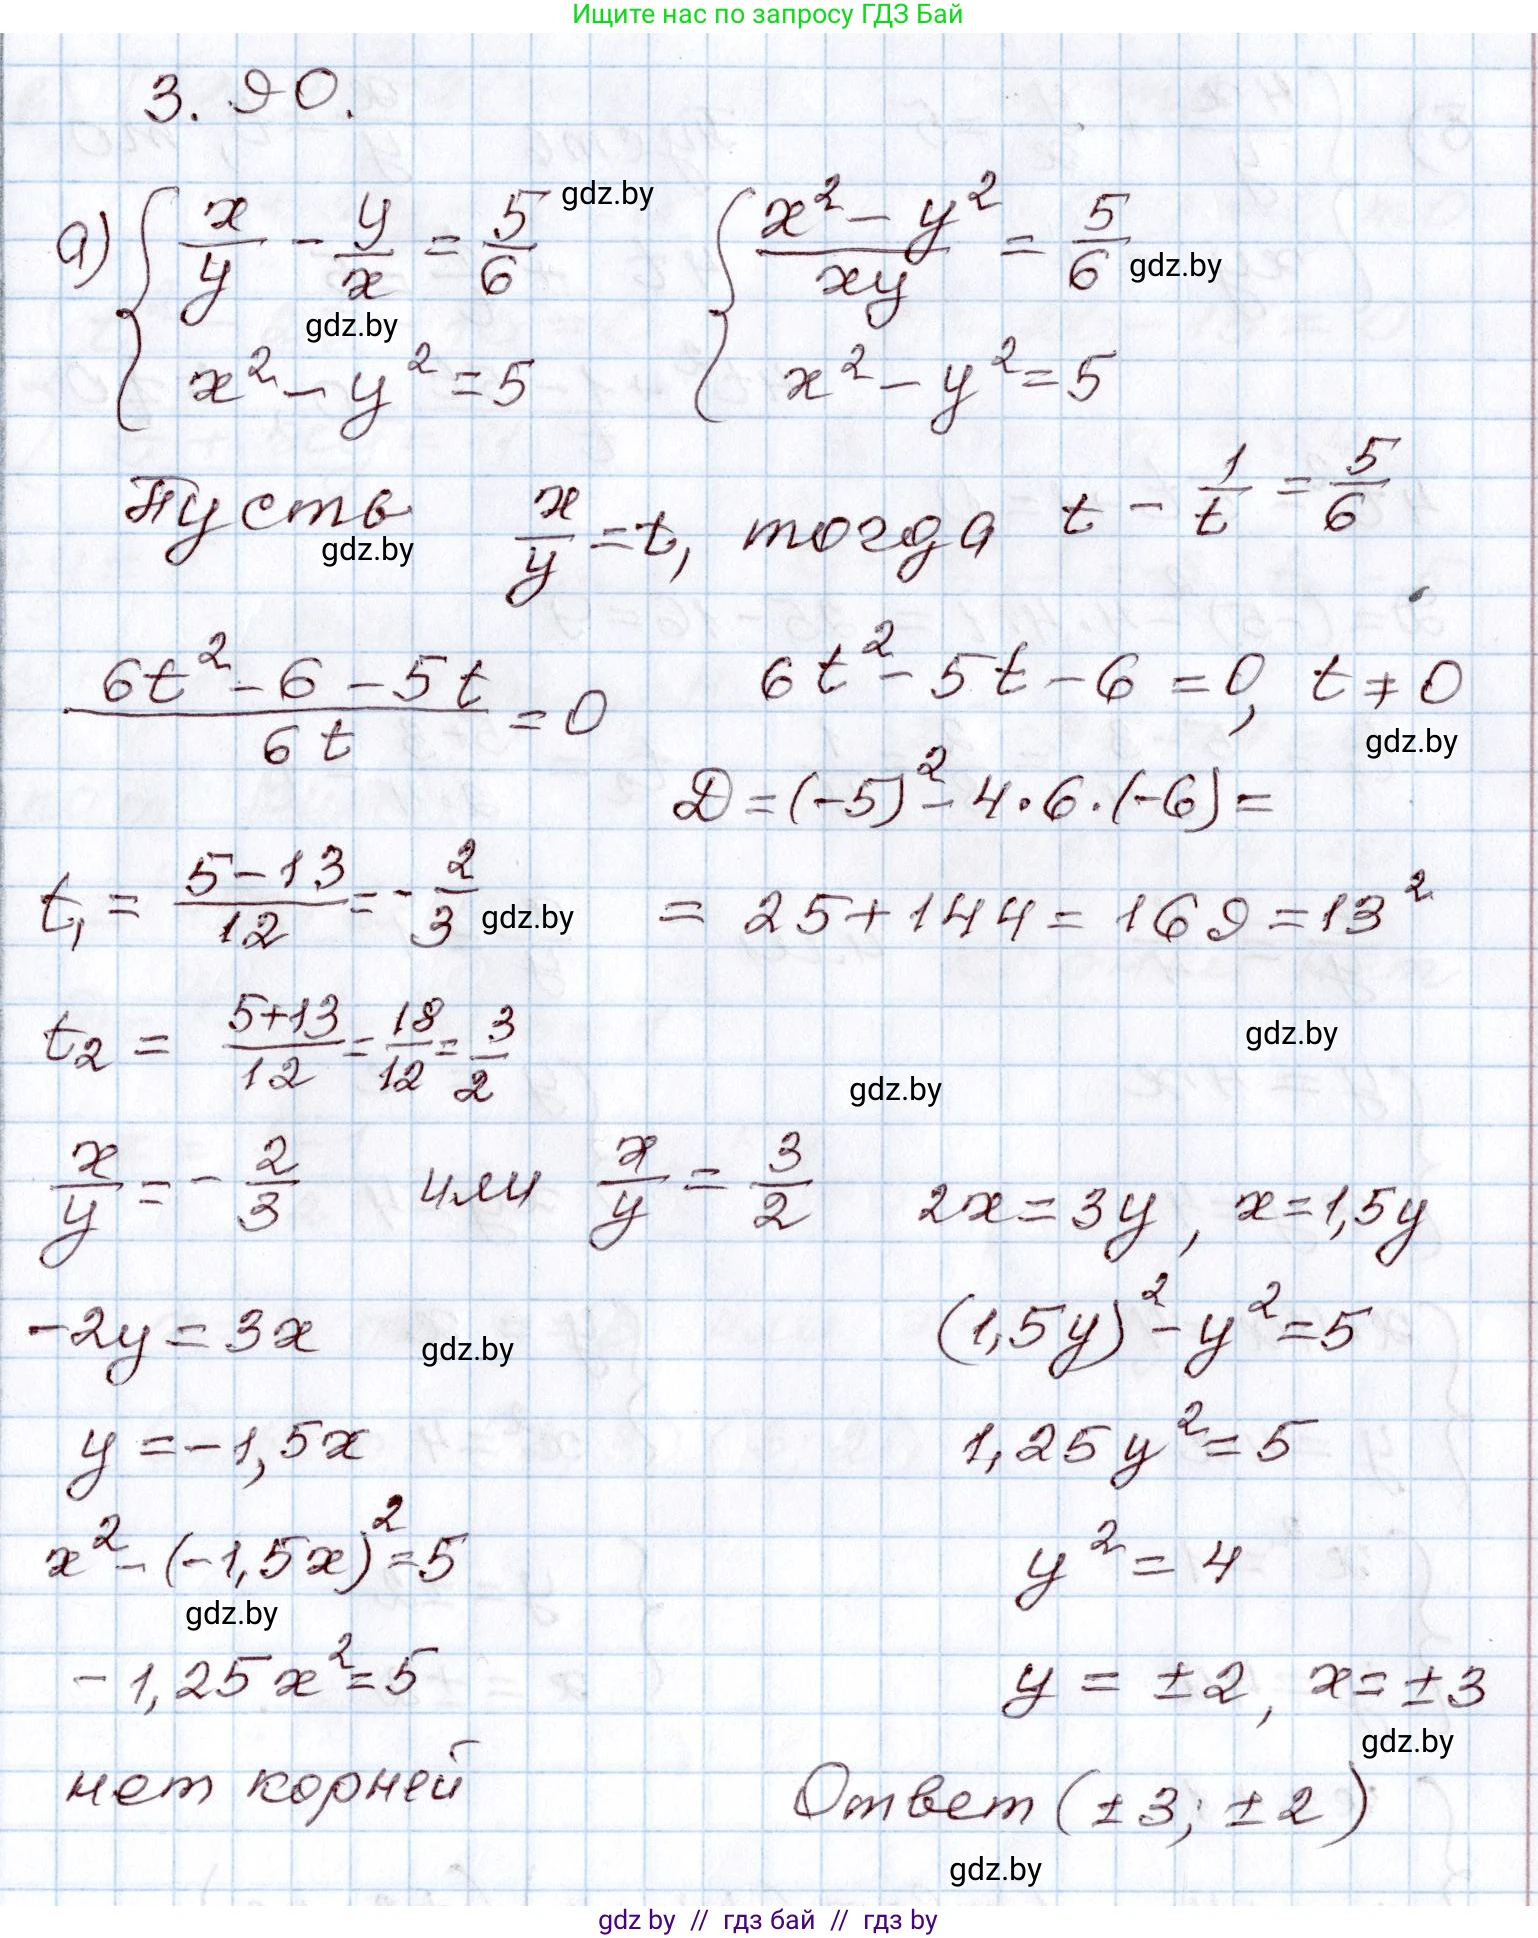 Ищите нас по запросу ГДЗ Бай
3.90.
а) { x/y - y/x = 5/6 gdz.by { (x² - y²)/(xy) = 5/6 gdz.by
gdz.by
x² - y² = 5 x² - y² = 5
Пусть x/y = t, тогда t - 1/t = 5/6
gdz.by
(6t² - 6 - 5t)/(6t) = 0 6t² - 5t - 6 = 0, t ≠ 0
gdz.by
Д = (-5)² - 4·6·(-6) =
t₁ = (5-13)/12 = -2/3 gdz.by = 25 + 144 = 169 = 13²
t₂ = (5+13)/12 = 18/12 = 3/2 gdz.by
gdz.by
x/y = -2/3 или x/y = 3/2 2x = 3y, x = 1,5y
-2y = 3x gdz.by (1,5y)² - y² = 5
y = -1,5x 1,25y² = 5
x² - (-1,5x)² = 5 y² = 4
gdz.by
-1,25x² = 5 y = ±2, x = ±3
gdz.by
нет корней Ответ (±3; ±2)
gdz.by
gdz by // гдз бай // гдз by